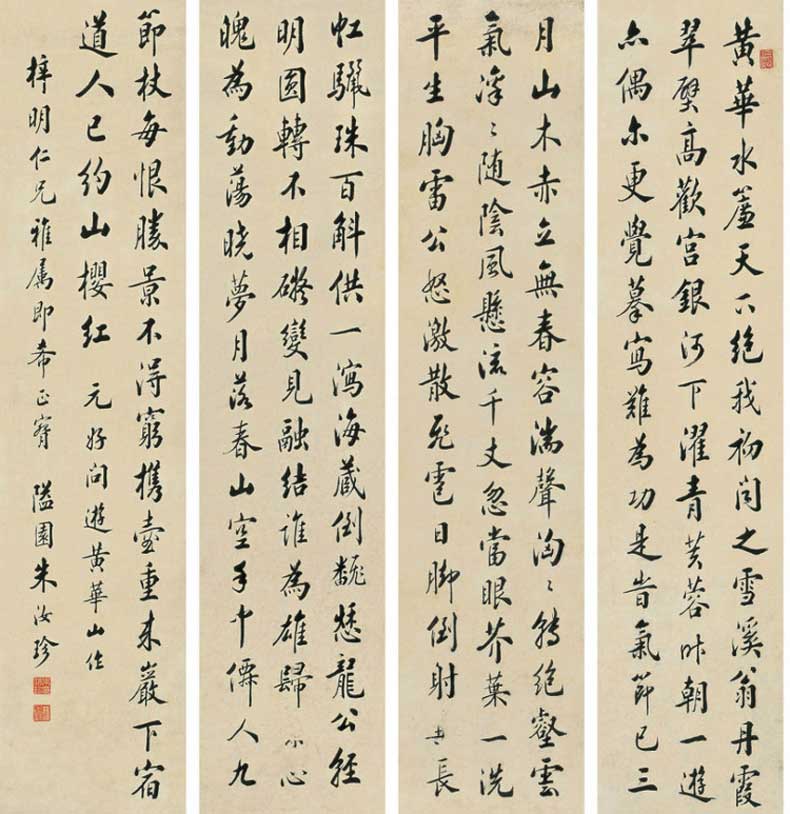 黃華水簾天下絕我初聞之雪溪翁丹霞
翠壁高歡宮銀河下濯青芙蓉昨朝一遊
亦偶尔更覺摹寫難為功是旹氣節已三
月山木赤立無春容湍聲洶〻轉絕壑雲
氣凜〻随陰風懸流千丈忽當眼芥葉一洗
平生胸雷公怒激散飛雹日脚倒射垂長
虹驪珠百斛供一瀉海藏倒翻愁龍公輕
明圓轉不相礙變見融結誰為雄歸來心
魄為動蕩曉夢月落春山空手中僊人九
節杖每恨勝景不得窮攜壺重来巖下宿
道人已約山櫻紅 元好問遊黃華山作
梓明仁兄雅属即希正 隘園朱汝珍